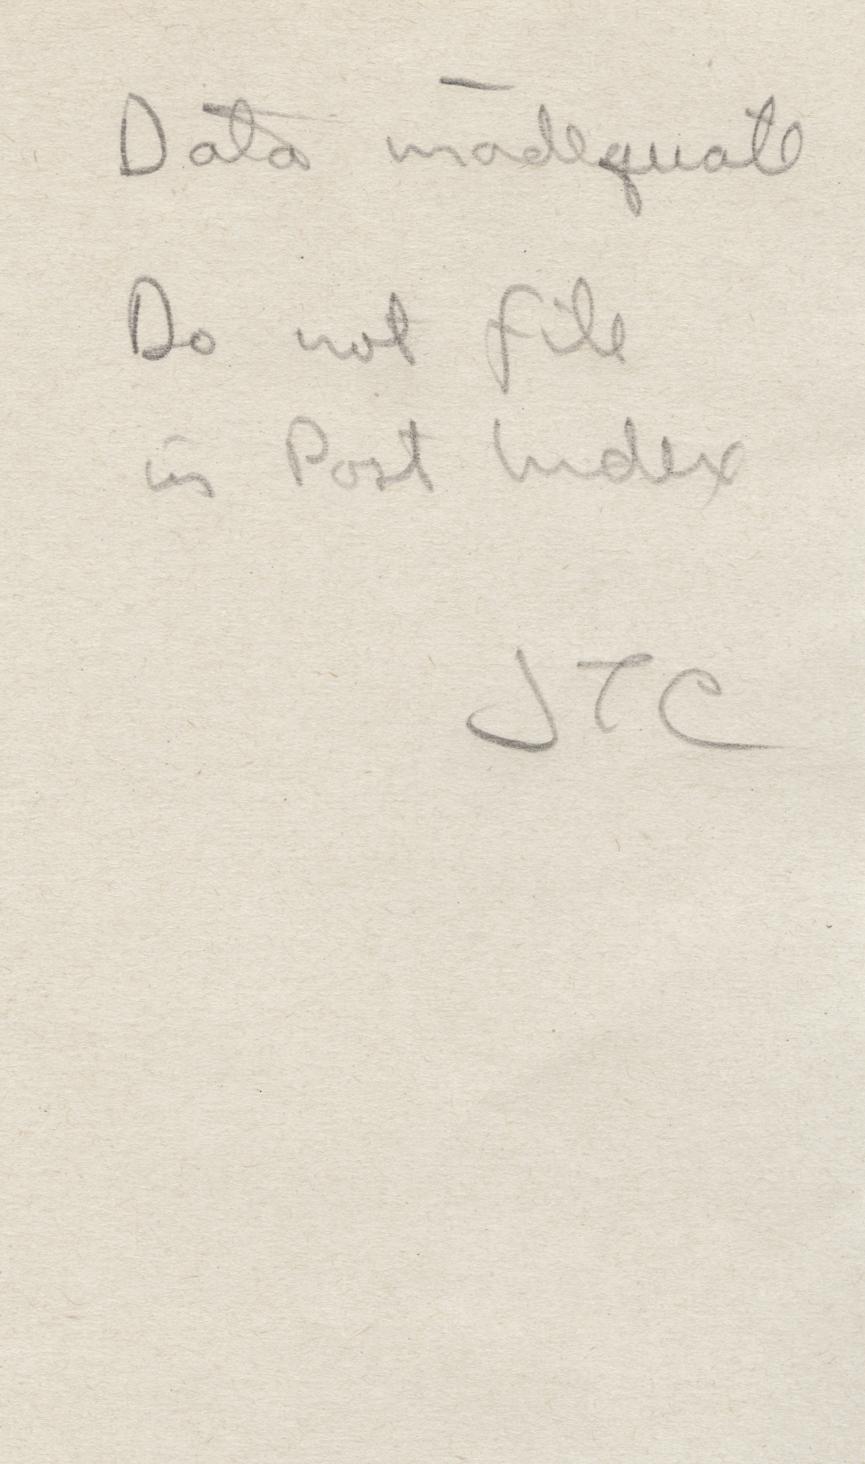 Data inadequate
Do not file
in Post Index
JTC